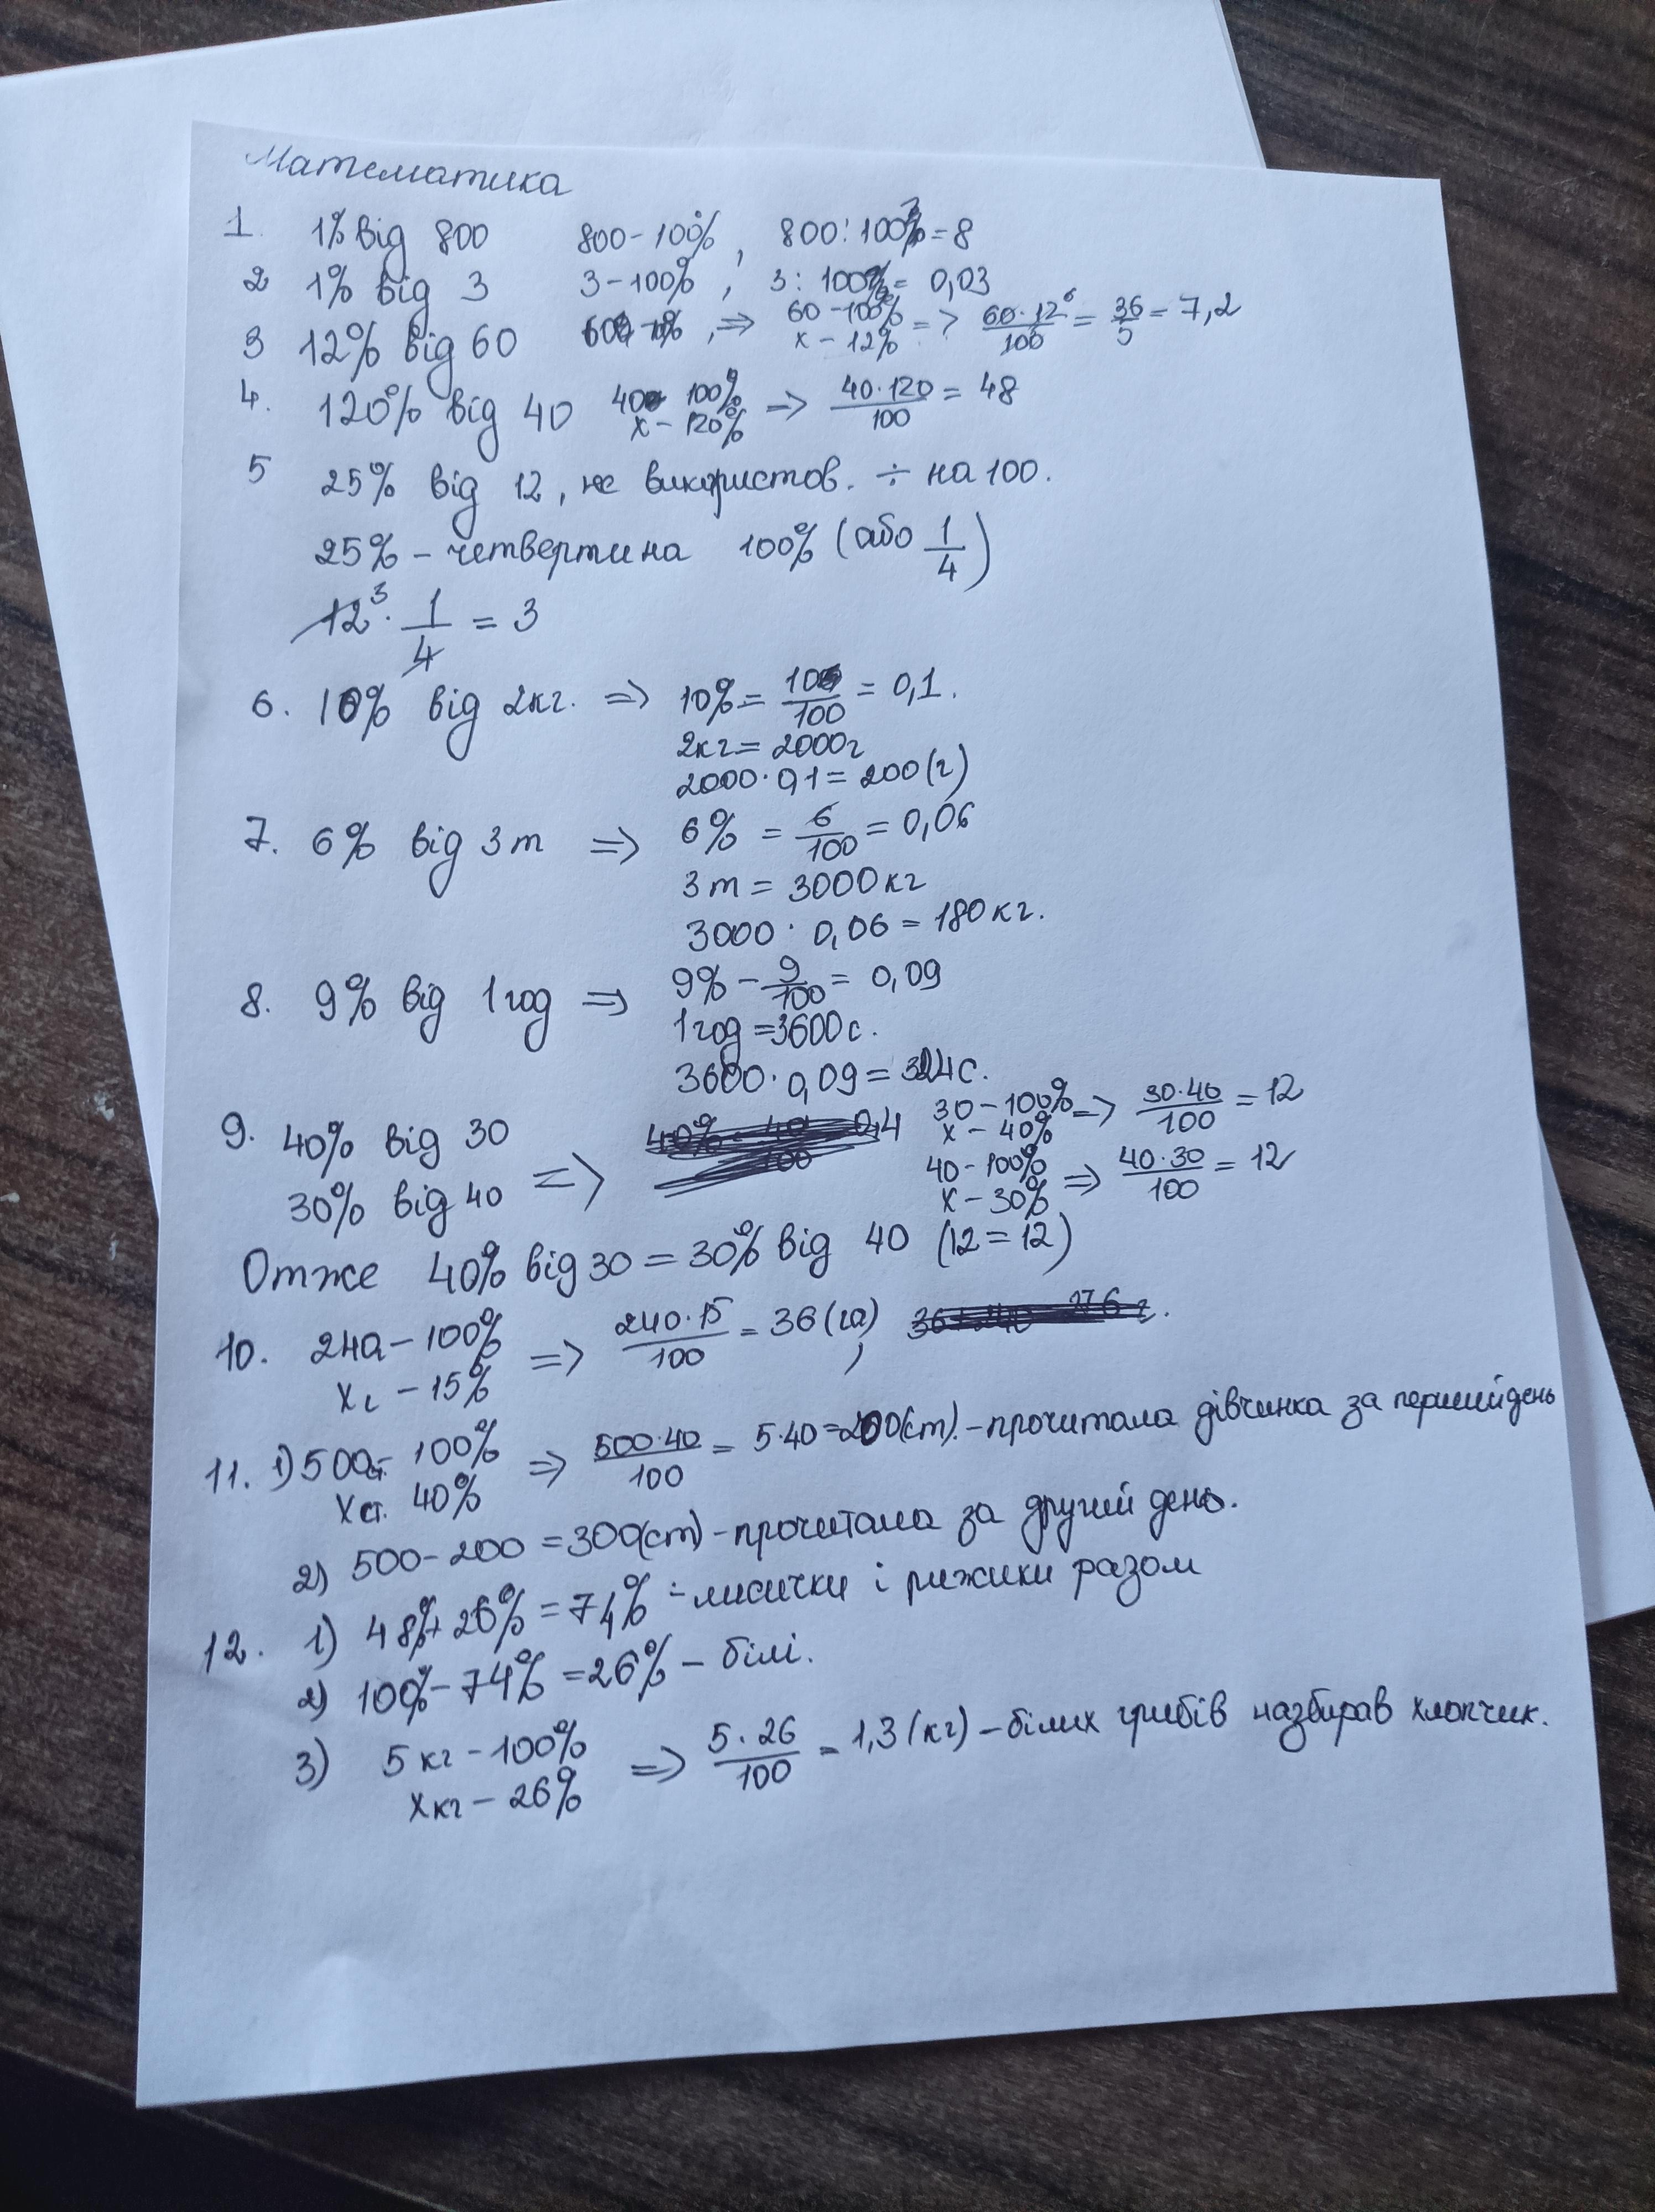 Математика
1. 1% від 800 800-100%, 800:100=8
2 1% від 3 3-100%, 3:100= 0,03
3 12% від 60 , => 60-100% x-12% => 60·12⁶/100 = 36/5 = 7,2
4. 120% від 40 40 100% x-120% => 40·120/100 = 48
5 25% від 12, не використов. ÷ на 100.
25% - четвертина 100% (або 1/4)
12³ · 1/4 = 3
6. 10% від 2кг. => 10% = 10/100 = 0,1.
2кг = 2000г
2000·0,1 = 200(г)
7. 6% від 3т => 6% = 6/100 = 0,06
3т = 3000кг
3000 · 0,06 = 180кг.
8. 9% від 1год => 9% - 9/100 = 0,09
1год = 3600с.
3600·0,09 = 324с.
9. 40% від 30 => 30-100% x-40% => 30·40/100 = 12
30% від 40 40-100% x-30% => 40·30/100 = 12
Отже 40% від 30 = 30% від 40 (12=12)
10. 24а-100% => 240·15/100 = 36(га),
xг - 15%
11. 1) 500ст- 100% => 500·40/100 = 5·40=200(ст).-прочитала дівчинка за перший день
xст. 40%
2) 500-200 =300(ст)-прочитала за другий день.
12. 1) 48%+26% = 74% - лисички і рижики разом
2) 100%-74% =26% - білі.
3) 5кг-100% => 5·26/100 = 1,3(кг)-білих грибів назбирав хлопчик.
xкг-26%